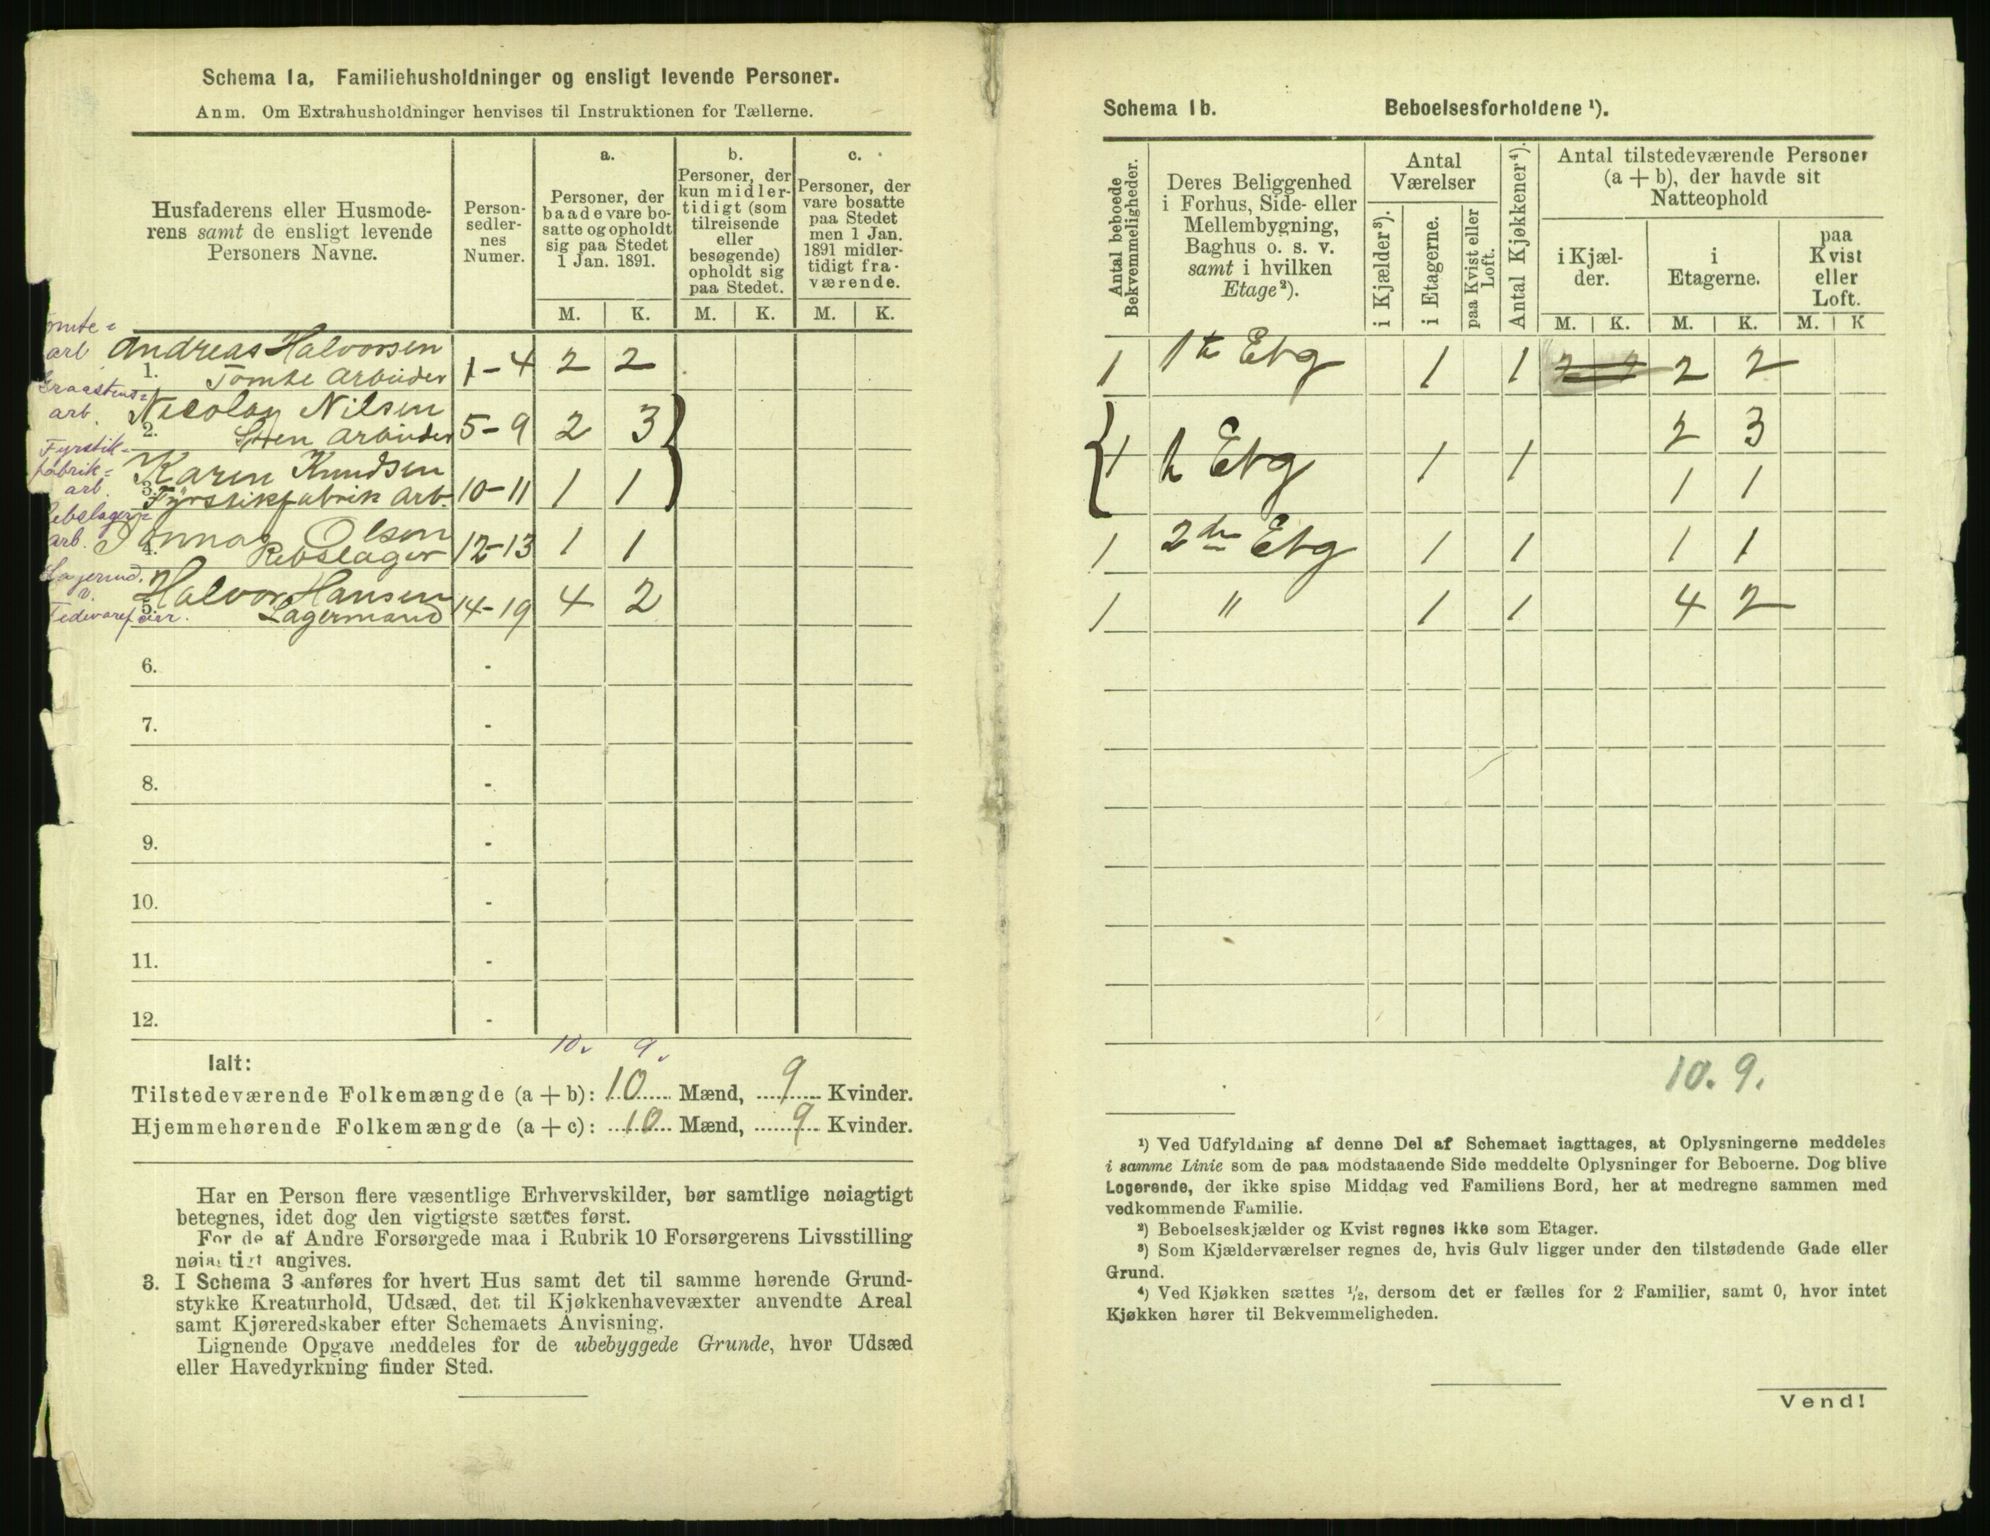 Schema 1a, Familiehusholdninger og ensligt levende Personer.
Anm. Om Extrahusholdninger henvises til Instruktionen for Tællerne.
Husfaderens eller Husmode-
rens samt de ensligt levende
Personers Navne.
Person-
sedler-
nes
Numer.
a.
Personer, der
baade vare bo-
satte og opholdt
sig paa Stedet
1 Jan. 1891.
b.
Personer, der
kun midler-
tidigt (som
tilreisende
eller
besøgende)
opholdt sig
paa Stedet.
c.
Personer, der
vare bosatte
paa Stedet
men 1 Jan.
1891 midler-
tidigt fra-
værende.
M. K. M. K. M. K.
Tomte-
arb. Andreas Halvorsen
1. Tomte Arbeider 1-4 2 2
Graastens-
arb. Nicolay Nilsen
2. Sten Arbeider 5-9 2 3
Fyrstik-
fabrik-
arb. Karen Knudsen
3. Fyrstikfabrik Arb. 10-11 1 1
Rebslager-
arb. Olsen
4. Rebslager 12-13 1 1
Lagermd.
v. Halvor Hansen
5. Lagermand 14-19 4 2
6. -
7. -
8. -
9. -
10. -
11. -
12. -
10. 9.
Ialt:
Tilstedeværende Folkemængde (a + b): 10 Mænd, 9 Kvinder.
Hjemmehørende Folkemængde (a + c): 10 Mænd, 9 Kvinder.
Har en Person flere væsentlige Erhvervskilder, bør samtlige nøiagtigt
betegnes, idet dog den vigtigste sættes først.
For de af Andre Forsørgede maa i Rubrik 10 Forsørgerens Livsstilling
nøiagtigt angives.
3. I Schema 3 anføres for hvert Hus samt det til samme hørende Grund-
stykke Kreaturhold, Udsæd, det til Kjøkkenhavevæxter anvendte Areal
samt Kjøreredskaber efter Schemaets Anvisning.
Lignende Opgave meddeles for de ubebyggede Grunde, hvor Udsæd
eller Havedyrkning finder Sted.
Schema 1b. Beboelsesforholdene ¹).
Antal beboede
Bekvemmeligheder.
Deres Beliggenhed
i Forhus, Side- eller
Mellembygning,
Baghus o. s. v.
samt i hvilken
Etage²).
Antal
Værelser
i Kjælder³).
i Etagerne.
paa Kvist eller
Loft.
Antal Kjøkkener⁴).
Antal tilstedeværende Personer
(a + b), der havde sit
Natteophold
i Kjæl-
der.
i
Etagerne.
paa
Kvist
eller
Loft.
M. K. M. K. M. K
1 1te Etg 1 1 2 2 2 2
2 3
1 1te Etg 1 1
1 1
1 2den Etg 1 1 1 1
1 " 1 1 4 2
10. 9.
¹) Ved Udfyldning af denne Del af Schemaet iagttages, at Oplysningerne meddeles
i samme Linie som de paa modstaaende Side meddelte Oplysninger for Beboerne. Dog blive
Logerende, der ikke spise Middag ved Familiens Bord, her at medregne sammen med
vedkommende Familie.
²) Beboelseskjælder og Kvist regnes ikke som Etager.
³) Som Kjælderværelser regnes de, hvis Gulv ligger under den tilstødende Gade eller
Grund.
⁴) Ved Kjøkken sættes ¹/₂, dersom det er fælles for 2 Familier, samt 0, hvor intet
Kjøkken hører til Bekvemmeligheden.
Vend!